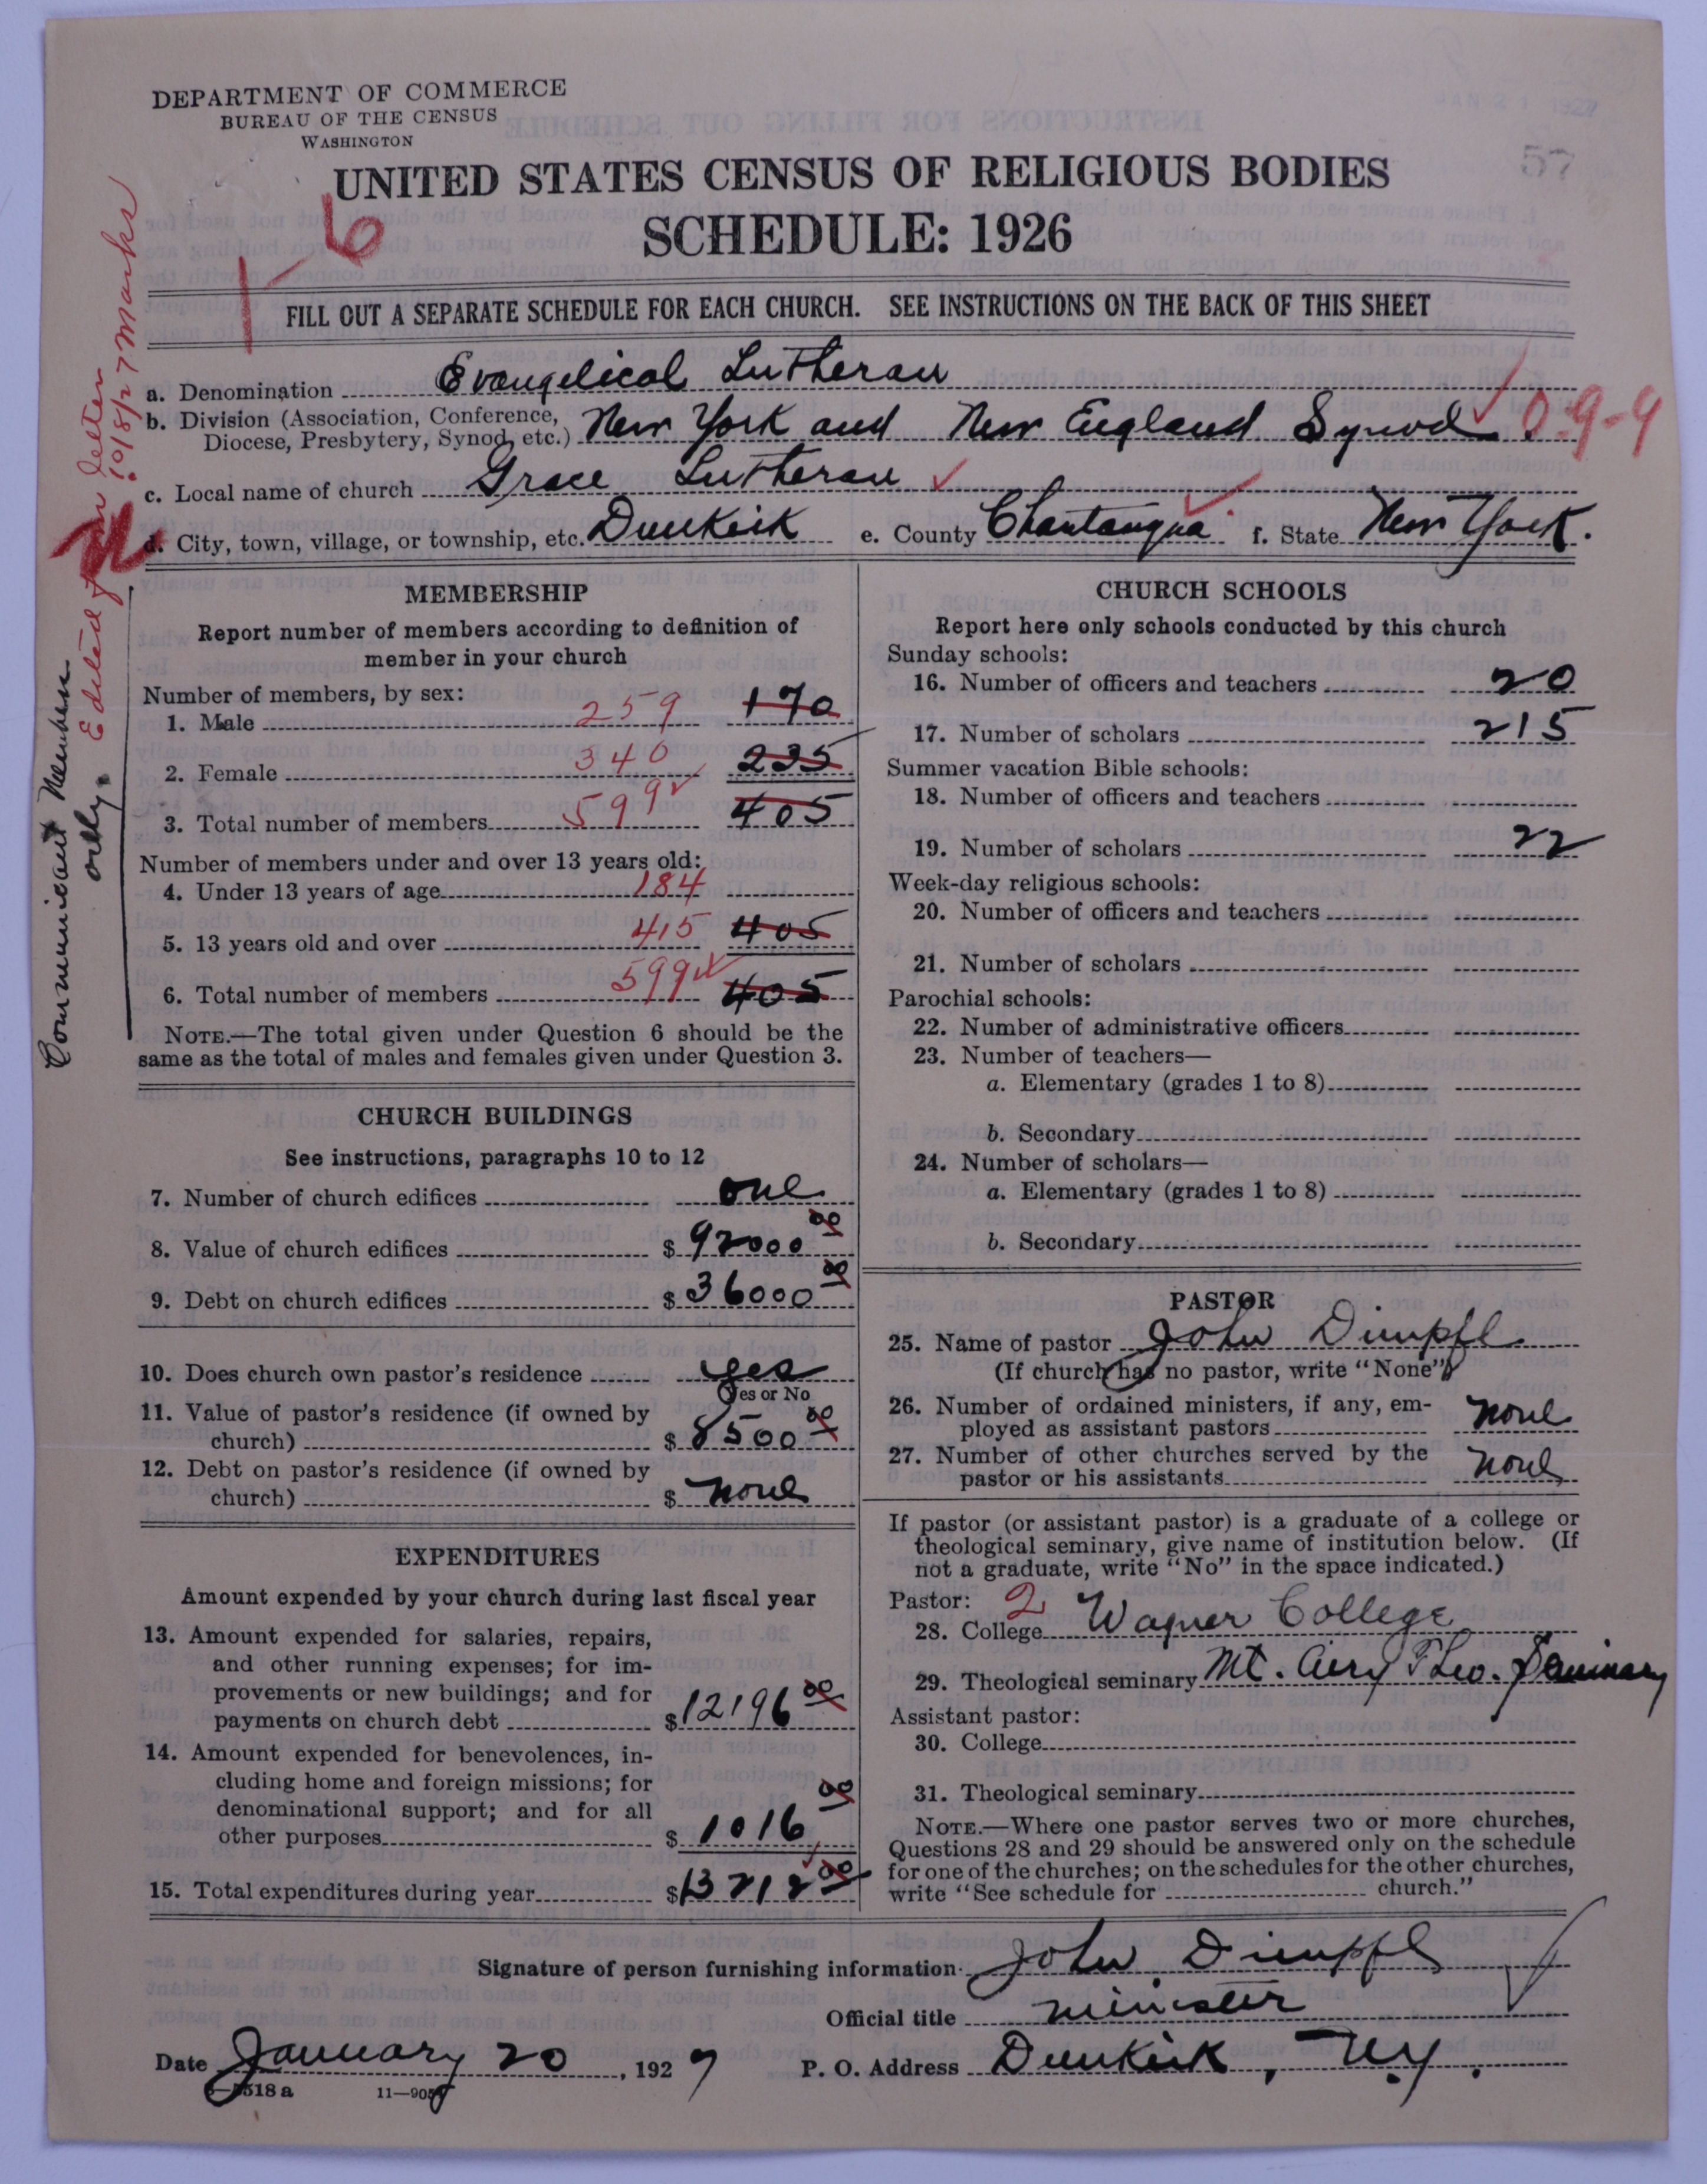 DEPARTMENT OF COMMERCE
BUREAU OF THE CENSUS
WASHINGTON
JAN 21 1927
57
UNITED STATES CENSUS OF RELIGIOUS BODIES
SCHEDULE: 1926
1-6
FILL OUT A SEPARATE SCHEDULE FOR EACH CHURCH. SEE INSTRUCTIONS ON THE BACK OF THIS SHEET
a. Denomination Evangelical Lutheran
b. Division (Association, Conference, Diocese, Presbytery, Synod, etc.) New York and New England Synod. 0-9-9
c. Local name of church Grace Lutheran
d. City, town, village, or township, etc. Dunkirk e. County Chautauqua f. State New York.
Edited from letter 10/8/27 Marks
Communicant Members only.
MEMBERSHIP
Report number of members according to definition of
member in your church
Number of members, by sex:
1. Male 259 170
2. Female 340 235
3. Total number of members 599 405
Number of members under and over 13 years old:
4. Under 13 years of age 184
5. 13 years old and over 415 405
6. Total number of members 599 405
NOTE.—The total given under Question 6 should be the
same as the total of males and females given under Question 3.
CHURCH BUILDINGS
See instructions, paragraphs 10 to 12
7. Number of church edifices one
8. Value of church edifices $ 92000 00
9. Debt on church edifices $ 36000 00
10. Does church own pastor's residence yes
Yes or No
11. Value of pastor's residence (if owned by
church) $ 8500 00
12. Debt on pastor's residence (if owned by
church) $ none
EXPENDITURES
Amount expended by your church during last fiscal year
13. Amount expended for salaries, repairs,
and other running expenses; for im-
provements or new buildings; and for
payments on church debt $ 12196 00
14. Amount expended for benevolences, in-
cluding home and foreign missions; for
denominational support; and for all
other purposes $ 1016 00
15. Total expenditures during year $ 13212 00
CHURCH SCHOOLS
Report here only schools conducted by this church
Sunday schools:
16. Number of officers and teachers 20
17. Number of scholars 215
Summer vacation Bible schools:
18. Number of officers and teachers
19. Number of scholars 22
Week-day religious schools:
20. Number of officers and teachers
21. Number of scholars
Parochial schools:
22. Number of administrative officers
23. Number of teachers—
a. Elementary (grades 1 to 8)
b. Secondary
24. Number of scholars—
a. Elementary (grades 1 to 8)
b. Secondary
PASTOR
25. Name of pastor John Dimpfl
(If church has no pastor, write "None")
26. Number of ordained ministers, if any, em-
ployed as assistant pastors none
27. Number of other churches served by the
pastor or his assistants none
If pastor (or assistant pastor) is a graduate of a college or
theological seminary, give name of institution below. (If
not a graduate, write "No" in the space indicated.)
Pastor: 2
28. College Wagner College
29. Theological seminary Mt. Airy Theo. Seminary
Assistant pastor:
30. College
31. Theological seminary
NOTE.—Where one pastor serves two or more churches,
Questions 28 and 29 should be answered only on the schedule
for one of the churches; on the schedules for the other churches,
write "See schedule for church."
Signature of person furnishing information John Dimpfl
Official title minister
Date January 20, 1927 P. O. Address Dunkirk, N.Y.